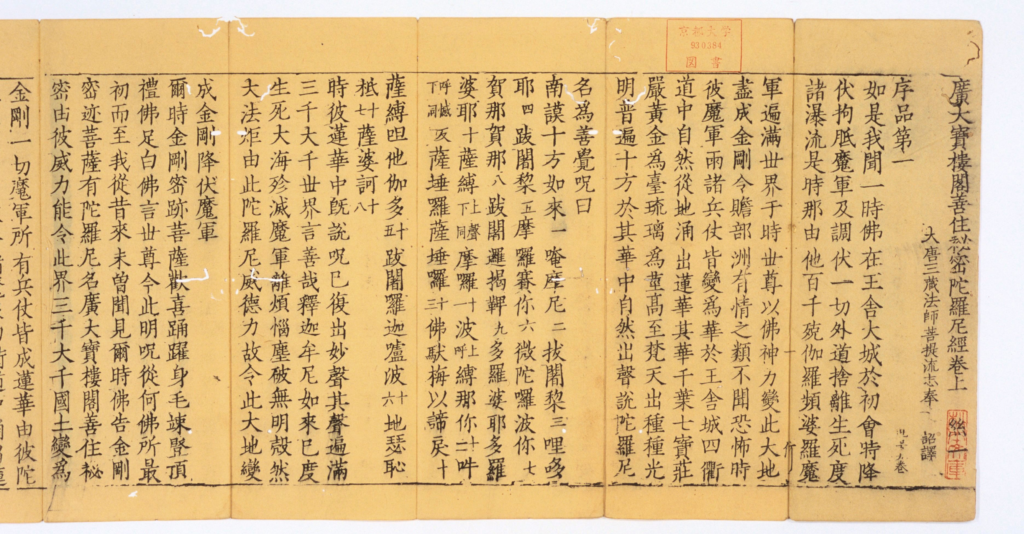 廣大寶樓閣善住秘密陀羅尼經卷上
大唐三藏法師菩提流志奉 詔譯
序品第一
如是我聞一時佛在王舍大城於初會時降
伏拘胝魔軍及調伏一切外道捨離生死度
諸瀑流是時那由他百千殑伽羅頻婆羅魔
軍遍滿世界于時世尊以佛神力變此大地
盡成金剛令贍部洲有情之類不聞恐怖時
彼魔軍雨諸兵仗皆變為華於王舍城四衢
道中自然從地涌出蓮華其華千葉七寶莊
嚴黃金為臺琉璃為莖高至梵天出種種光
明普遍十方於其華中自然出聲說陀羅尼
名為善覺呪曰
南謨十方如來一唵摩尼二拔闍黎三哩多
耶四跋闍黎五摩囉賽你六微陀囉波你七
賀那賀那八跋闍邏揭鞞九多羅婆耶多羅
婆耶十薩縛上聲下同摩囉十一波上呼縛那你十二吽
呼城下同薩埵囉薩埵囉十三佛馱梅以諦戾十四
薩縛呾他伽多十五跋闍囉迦嚧波十六地瑟恥
柢十七薩婆訶十八
時彼蓮華中旣說呪已復出妙聲其聲遍滿
三千大千世界言善哉釋迦牟尼如來已度
生死大海殄滅魔軍離煩惱塵破無明殼然
大法炬由此陀羅尼威德力故令此大地變
成金剛降伏魔軍
爾時金剛密跡菩薩歡喜踊躍身毛竦豎頂
禮佛足白佛言世尊今此明呪從何佛所最
初而至我從昔來未曾聞見爾時佛告金剛
密迹菩薩有陀羅尼名廣大寶樓閣善住秘
密由彼威力能令此界三千大千國土變為
金剛一切魔軍所有兵仗皆成蓮華由彼陀
京都大学
930384
図書